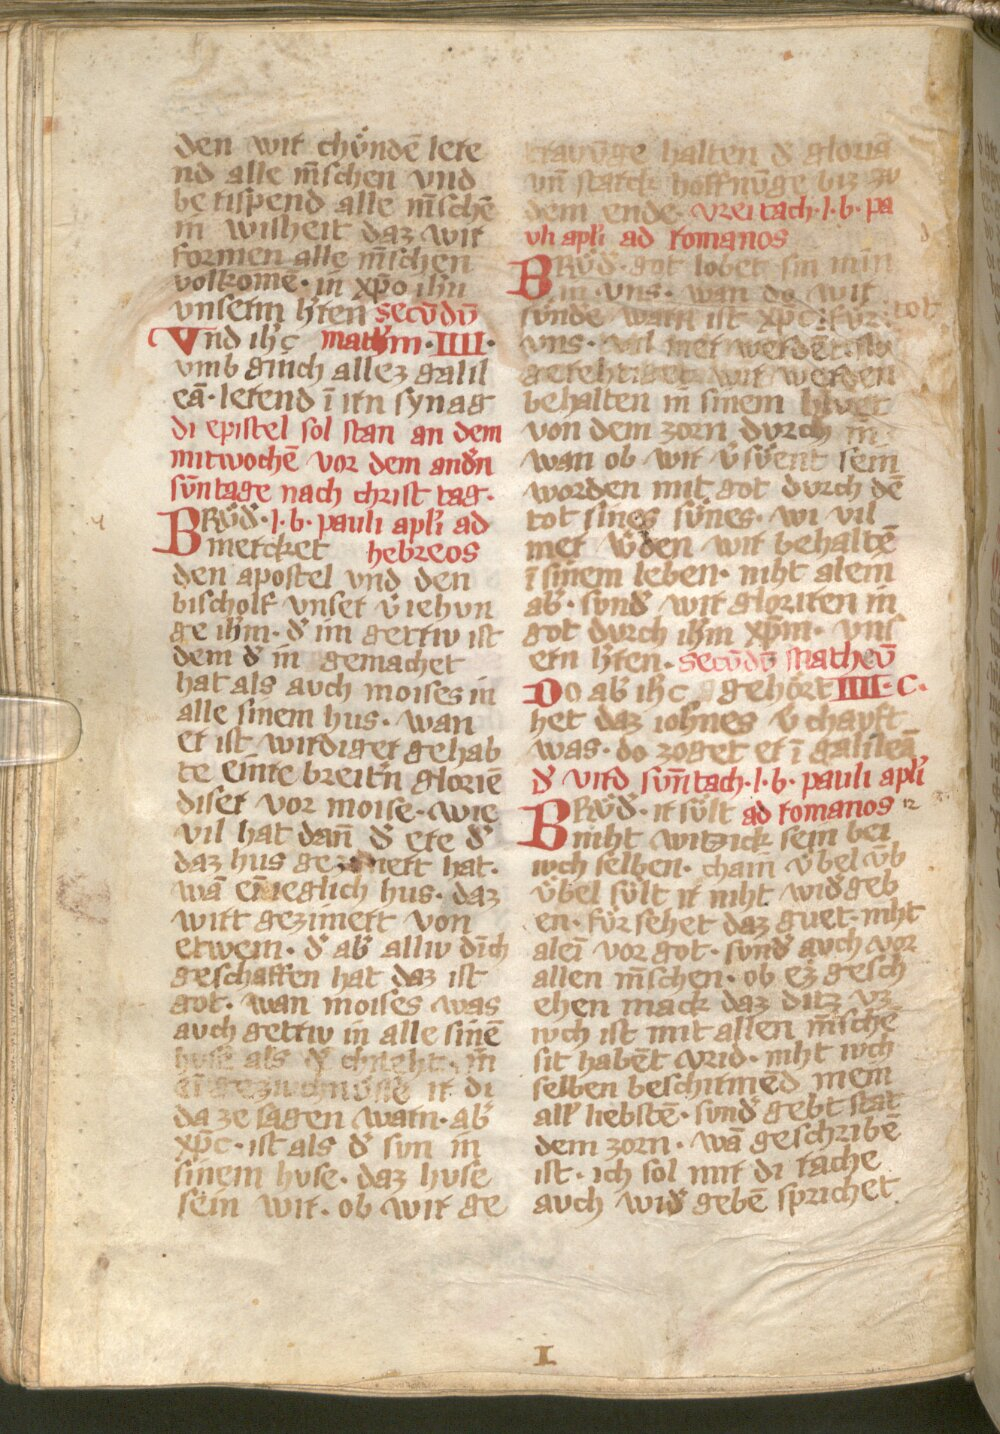 den wir chúndē lere
nd alle m̄schen vnd
berispend alle m̄schē
in wisheit daz wir
formen alle m̄schen
volkomē · in xp̄o ih̄u
vnserm h̓ren secūdū
Vnd ih̄c math̄m · IIII ·
vmb giench allez galil
eā · lerend ī irn synag
di epistel sol stan an dem
mitwochē vor dem and̓n
sūntage nach christ tag ·
BRvd̓ · l · b · pauli apl̓i ad
mercket hebreos
den apostel vnd den
bischolf vnser v̓iehun
ge ih̄m · d̓ im getriv ist
dem d̓ in gemachet
hat als auch moises in
alle sinem hus · wan
er ist wirdiger gehab
te einre breitn̓ gloriē
diser vor moise · wie
vil hat dan̄ d̓ ere d̓
daz hus gezimert hat ·
wā ein ieglich hus · daz
wirt gezimert von
etwem · d̓ ab̓ alliv dīch
geschaffen hat daz ist
got · wan moises was
auch getriv in alle sinē
huse als d̓ chneht · in
ein gezivchnússe ir di
da ze sagen warn · ab̓
xp̄c · ist als d̓ svn in
sinem huse · daz huse
sein wir · ob wir ge
travūge halten d̓ gloria
vn̄ starck hoffnūge biz zv
dem ende · vreitach · l · b · pa
vli apl̓i ad romanos
BRvd̓ · got lobet sin min
in · vns · wan do wir
súnde warn ist xp̄c : fúr :
vns · vil mer werdēt · nv
gerehtiget wir werden
behalten in sinem blvet
von dem zorn durch in ·
wan ob wir v̓sv́ent sein
worden mit got durch dē
tot sines svnes · wi vil
mer w̓den wir behaltē
ī sinem leben · niht alein
ab̓ · svnd̓ wir gloriren in
got durch ih̄m xp̄m · vns
ern h̓ren · secūdū Matheū
Do ab̓ ih̄c gehórt IIII · C ·
het daz ioh̄nes v̓chavft
was · do zoget er ī galileā
d̓ vird svn̄tach · l · b · pauli apl̓i
BRvd̓ · ir súlt ad romanos 12
niht witzick sein bei
ivch selben · cham̄ v́bel v̄b
v́bel súlt ir niht wid̓geb
en · fúrsehet daz guet · niht
alei vor got · svnd̓ auch vor
allen m̄schen · ob ez gesch
ehen mack daz ditz vz
ivch ist mit allen m̄schē
sit habēt vrid · niht ivch
selben beschirmēd mein
all̓ liebstē · svnd̓ gebt stat
dem zorn · wā geschribē
ist · ich sol mit di rache
auch wid̓ gebē sprichet
I